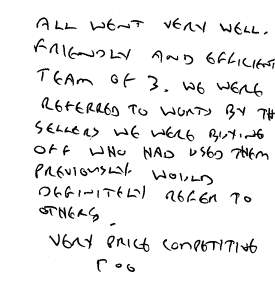 ALL WENT VERY WELL.
FRIENDLY AND EFFICIENT
TEAM OF 3. WE WERE
REFERRED TO WORTS BY TH
SELLERS WE WERE BUYING
OFF WHO HAD USED THEM
PREVIOUSLY WOULD
DEFINITELY REFER TO
OTHERS.
VERY PRICE COMPETITIVE
TOO